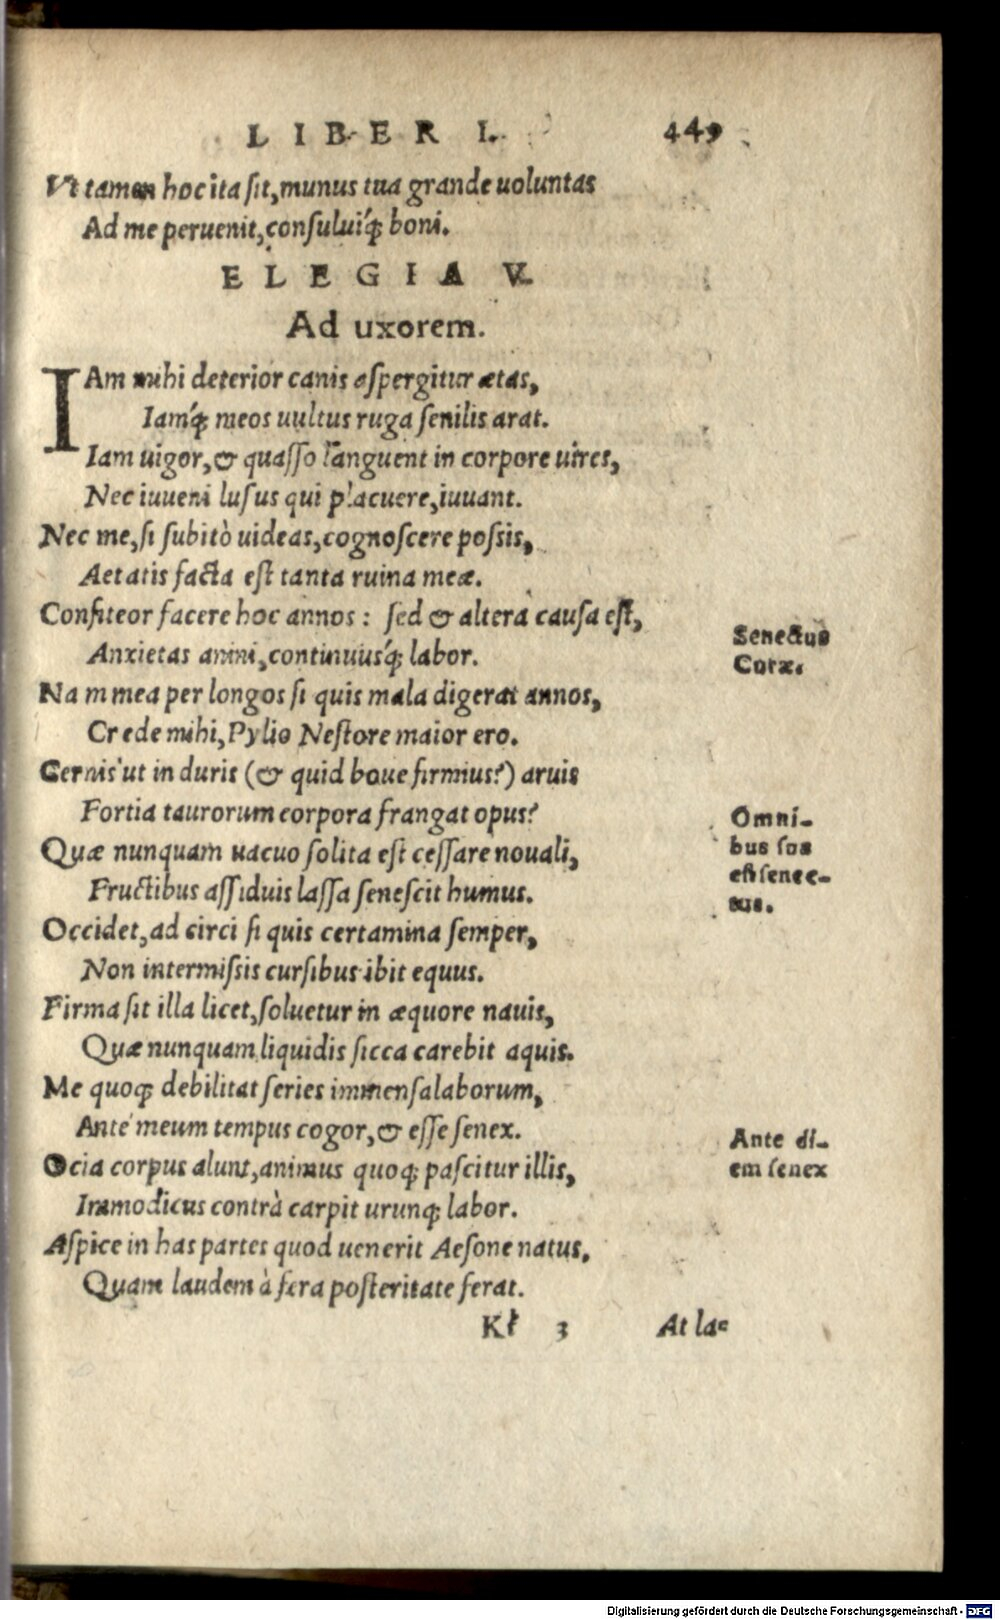 LIBER I. 449
Vt tamen hoc ita ſit, munus tua grande uoluntas
Ad me peruenit, conſuluiq́; boni.
ELEGIA V.
Ad uxorem.
IAm mihi deterior canis aſpergitur ætas,
Iamq́; meos uultus ruga ſenilis arat.
Iam uigor, & quaſſo languent in corpore uires,
Nec iuueni luſus qui placuere, iuuant.
Nec me, ſi ſubitò uideas, cognoſcere poſsis,
Aetatis facta eſt tanta ruina meæ.
Confiteor facere hoc annos: ſed & altera cauſa eſt,
Anxietas animi, continuusq́; labor.
Nam mea per longos ſi quis mala digerat annos,
Crede mihi, Pylio Neſtore maior ero.
Cernis ut in duris (& quid boue firmius?) aruis
Fortia taurorum corpora frangat opus?
Quæ nunquam uacuo ſolita eſt ceſſare nouali,
Fructibus aſſiduis laſſa ſeneſcit humus.
Occidet, ad circi ſi quis certamina ſemper,
Non intermiſsis curſibus ibit equus.
Firma ſit illa licet, ſoluetur in æquore nauis,
Quæ nunquam liquidis ſicca carebit aquis.
Me quoq; debilitat ſeries immenſa laborum,
Ante meum tempus cogor, & eſſe ſenex.
Ocia corpus alunt, animus quoq; paſcitur illis,
Immodicus contrà carpit utrunq; labor.
Aſpice in has partes quod uenerit Aeſone natus,
Quam laudem à ſera poſteritate ferat.
Kk 3 At la-
Senectus
Curæ.
Omni-
bus ſua
eſt ſenec-
tus.
Ante di-
em ſenex
Digitalisierung gefördert durch die Deutsche Forschungsgemeinschaft - DFG